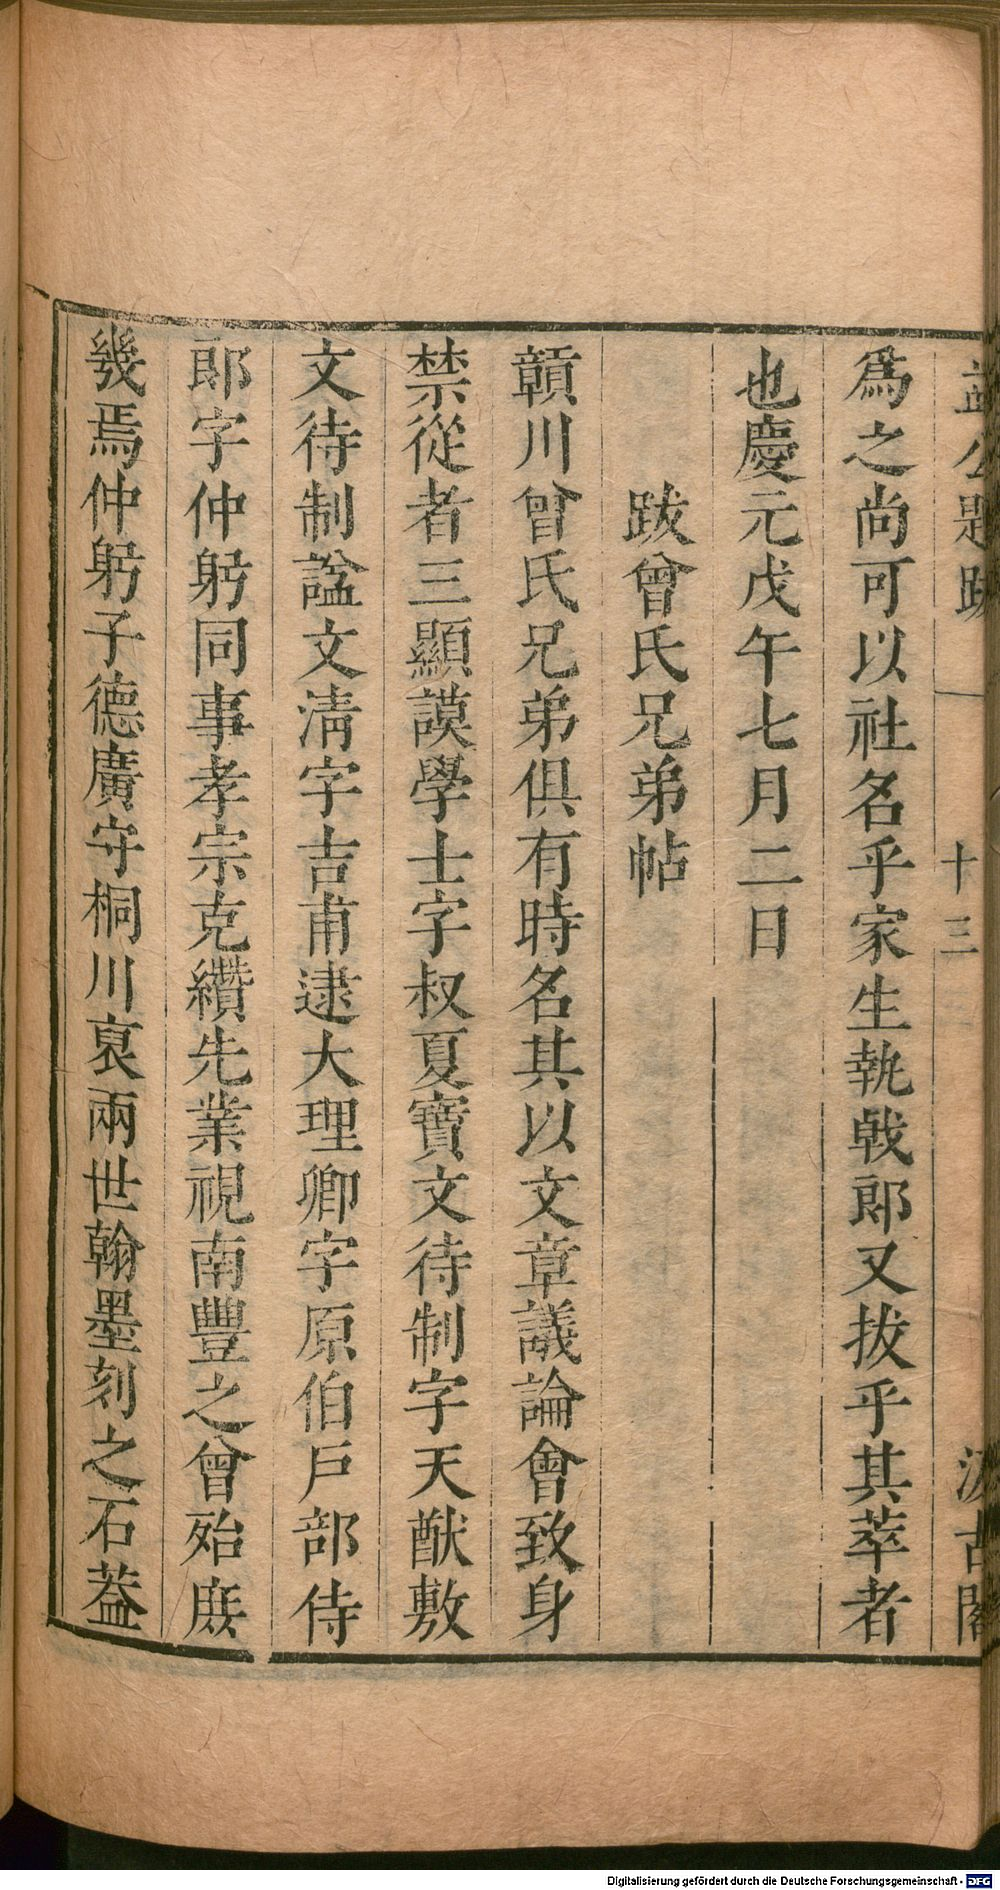 益公題跋 十三 汲古閣
爲之尚可以社名乎家生執戟郎又拔乎其萃者
也慶元戊午七月二日
跋曾氏兄弟帖
贑川曾氏兄弟俱有時名其以文章議論會致身
禁從者三顯謨學士字叔夏寶文待制字天猷敷
文待制諡文淸字吉甫逮大理卿字原伯戶部侍
郎字仲躬同事孝宗克纘先業視南豐之曾殆庶
幾焉仲躬子德廣守桐川裒兩世翰墨刻之石葢
Digitalisierung gefördert durch die Deutsche Forschungsgemeinschaft - DFG